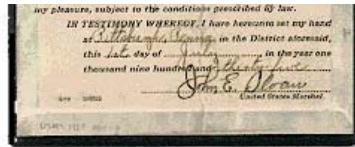 my pleasure, subject to the conditions prescribed by law.
IN TESTIMONY WHEREOF, I have hereunto set my hand
at Pittsburgh, Penna. in the District aforesaid,
this 1st day of July, in the year one
thousand nine hundred and thirty five
John E. Sloan
United States Marshal.